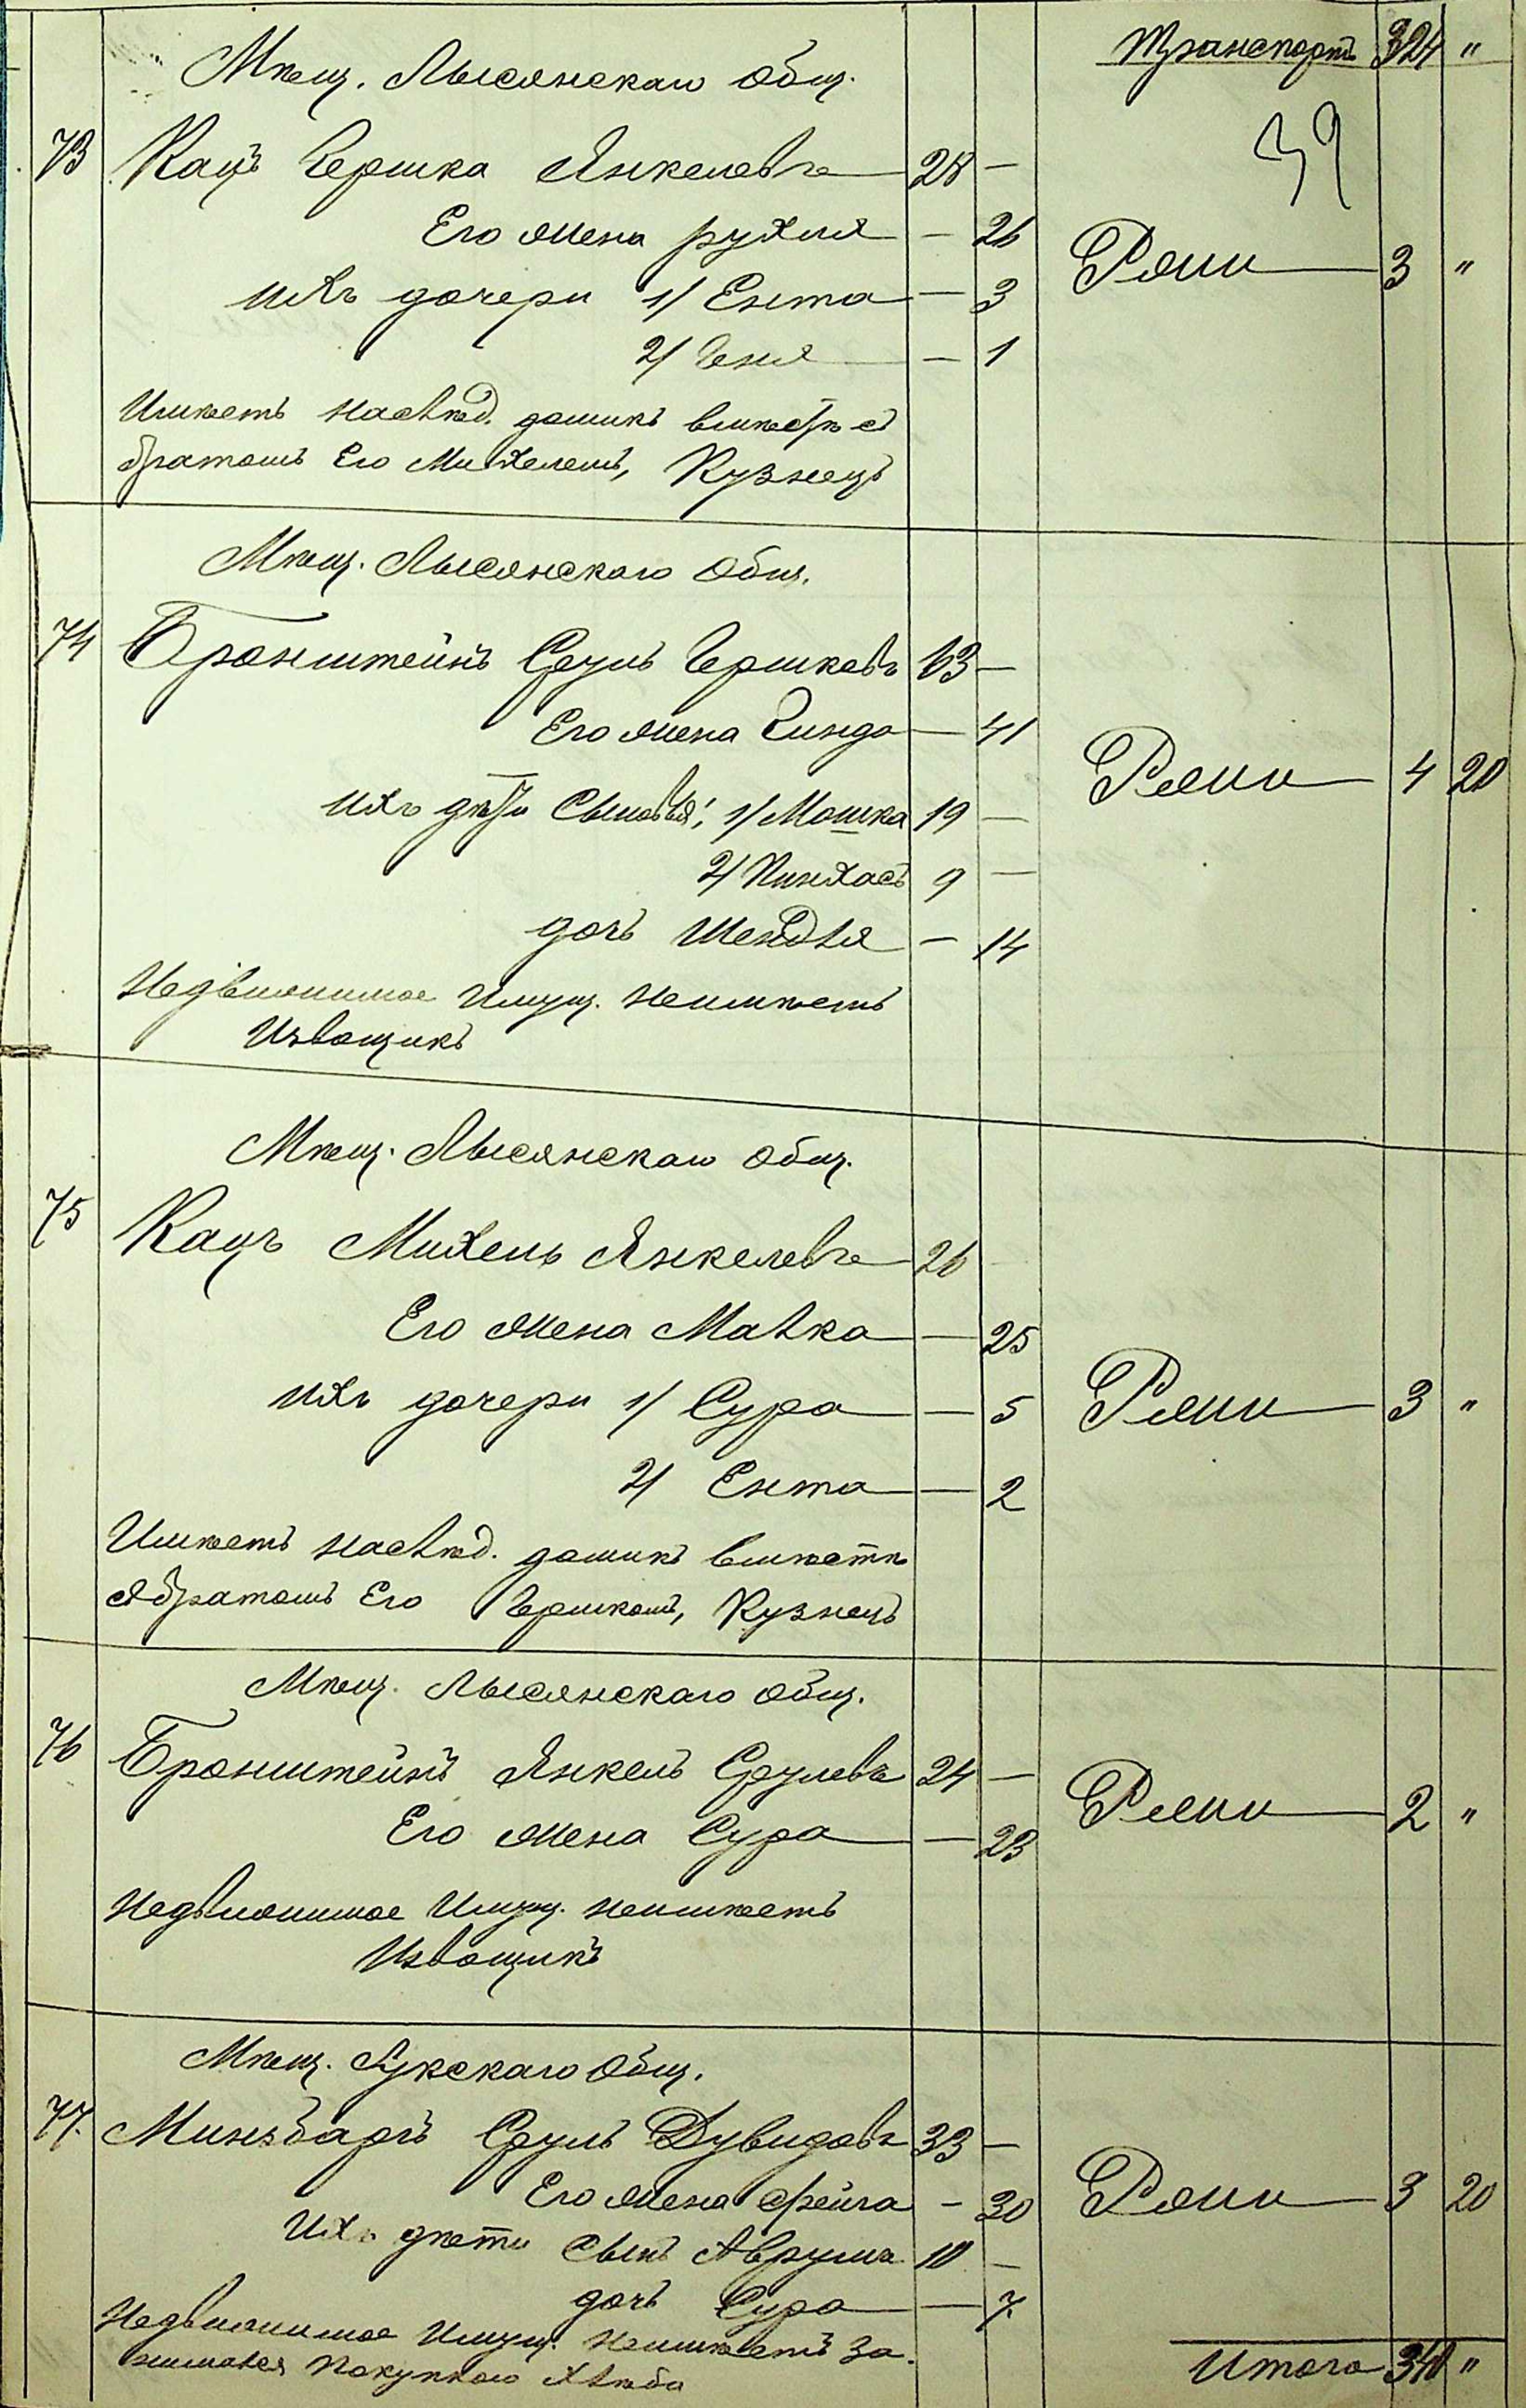 Транспортъ 324 "
39
Мѣщ. Лысянскаго Общ.
73 Кацъ Гершко Янкелевъ 28 —
Его жена Рухля — 26 Ряши 3 "
ихъ дочери 1/ Ента — 3
2/ Геня — 1
Имѣетъ наслѣд. домикъ вмѣстѣ съ
братомъ Его Михелемъ, Кузнецъ
Мѣщ. Лысянскаго Общ.
74 Бронштейнъ Сруль Гершковъ 63 —
Его жена Гинда — 41 Ряши 4 20
ихъ дѣти Сыновья: 1/ Мошка 19 —
2/ Пинхасъ 9 —
дочь Шендля — 14
Недвижимое Имущ. Неимѣетъ
Извощикъ
Мѣщ. Лысянскаго Общ.
75 Кацъ Михель Янкелевъ 26
Его жена Малка — 25
ихъ дочери 1/ Сура — 5 Ряши 3 "
2/ Ента — 2
Имѣетъ наслѣд. домикъ вмѣстѣ
съ братомъ Его Гершкомъ, Кузнецъ
Мѣщ. Лысянскаго Общ.
76 Бронштейнъ Янкель Срулевъ 24 —
Его жена Сура — 23 Ряши 2 "
Недвижимое Имущ. Неимѣетъ
Извощикъ
Мѣщ. Лукскаго Общ.
77. Минзбаргъ Сруль Дувидовъ 33 —
Его жена Фейга — 30 Ряши 3 20
Ихъ дѣти Сынъ Аврумъ 10 —
дочь Сура — 7
Недвижимое Имущ. Неимѣетъ За-
нимается Покупкою Хлѣба
Итого 340 "